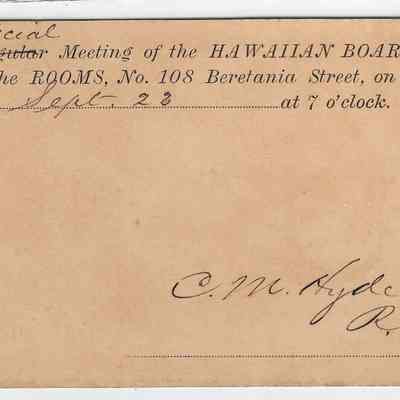 ecial
gular Meeting of the HAWAIIAN BOAR
he ROOMS, No. 108 Beretania Street, on
Sept. 22 at 7 o'clock.
C. M. Hyde
R.